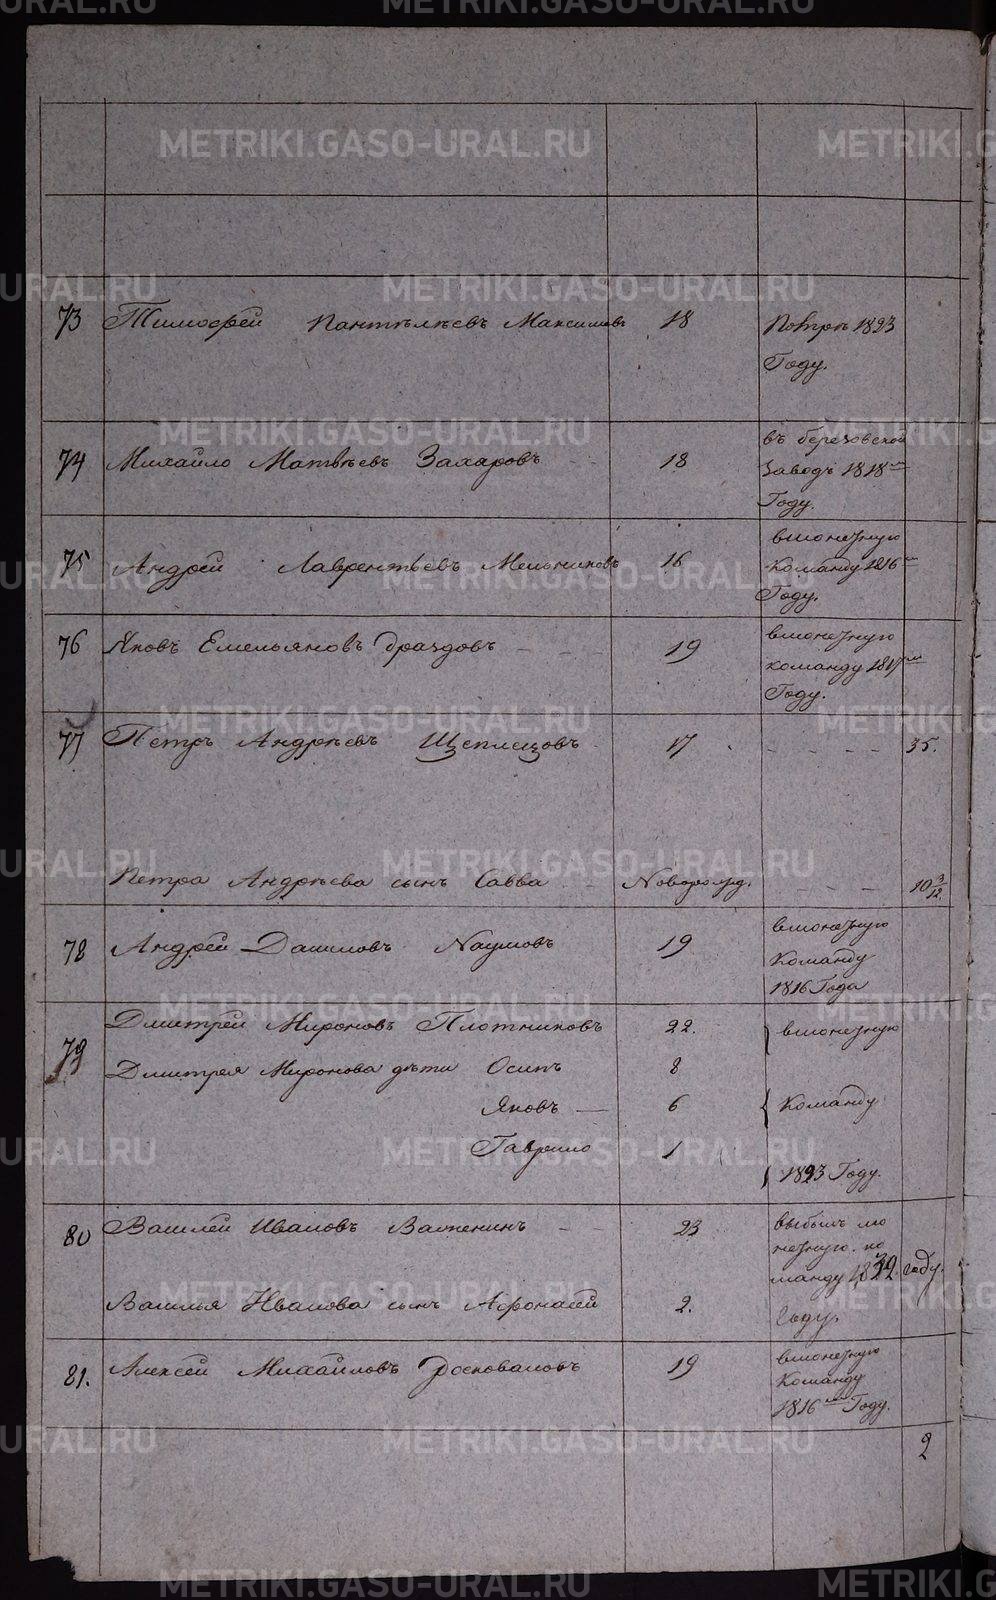 METRIKI.GASO-URAL.RU
73 Тимофей Пантѣлѣевъ Максимовъ 18 Помре 1823
Году.
74 Михайло Матвѣевъ Захаровъ 18 въ березовской
Заводъ 1818го
Году.
75 Андрей Лаврентьевъ Мельниковъ 16 вмонетную
Команду 1816го
Году.
76 Яковъ Емельяновъ Дроздовъ 19 вмонетную
команду 1817го
Году.
77 Петръ Андрѣевъ Щеплецовъ 17 35.
Петра Андрѣева сынъ Савва Новорожд. 10 3/12.
78 Андрей Даниловъ Наумовъ 19 вмонетную
Команду
1816 Года
79 Дмитрей Мироновъ Плотниковъ 22. вмонетную
Дмитрея Миронова дѣти Осипъ 8
Яковъ 6 Команду
Гаврило 1
1823 Году.
80 Василей Ивановъ Важенинъ 23 выбылъ мо
нетную ко
манду 1832 году.
Василья Иванова сынъ Афонасей 2. Году.
81. Алексей Михайловъ Росковаловъ 19 вмонетную
Команду
1816го Году.
2